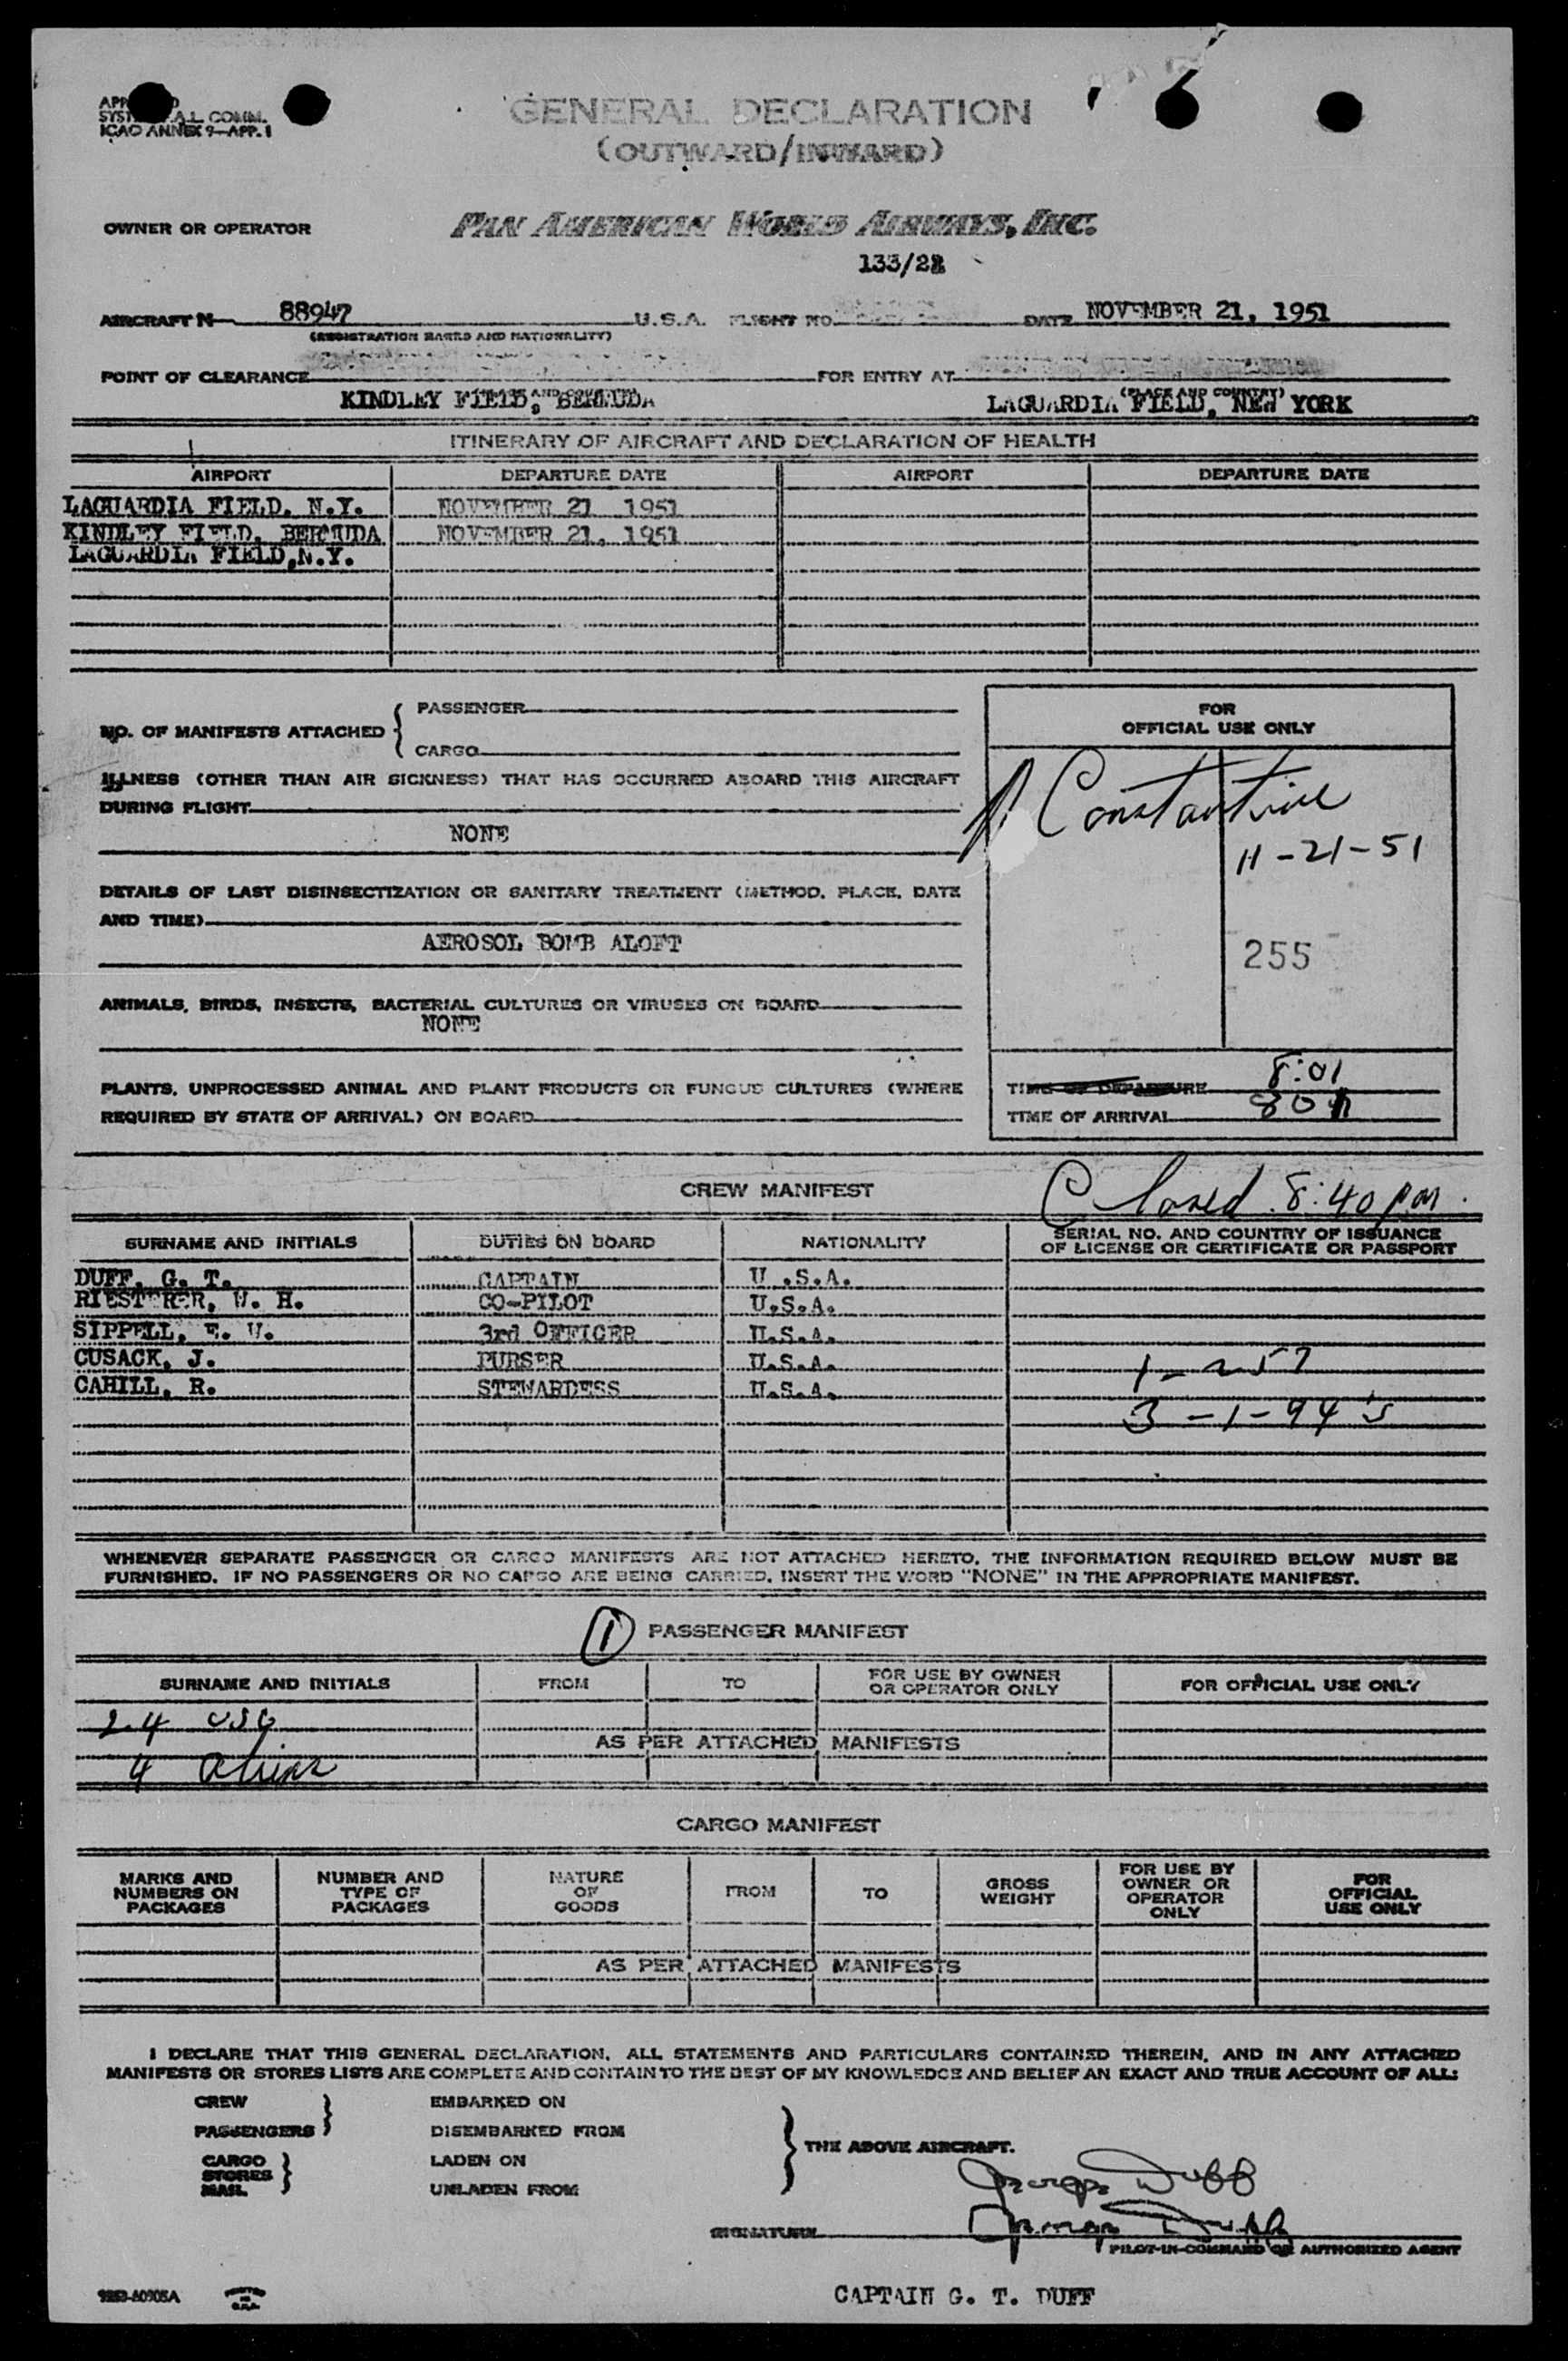 GENERAL DECLARATION
(OUTWARD/INWARD)
SYST A.L. COMM.
ICAO ANNEX 9—APP. 1
OWNER OR OPERATOR PAN AMERICAN WORLD AIRWAYS, INC.
AIRCRAFT N 88947 U.S.A. FLIGHT NO. DATE NOVEMBER 21, 1951
(REGISTRATION MARKS AND NATIONALITY)
POINT OF CLEARANCE FOR ENTRY AT
KINDLEY FIELD, BERMUDA LAGUARDIA FIELD, NEW YORK
ITINERARY OF AIRCRAFT AND DECLARATION OF HEALTH
AIRPORT DEPARTURE DATE AIRPORT DEPARTURE DATE
LAGUARDIA FIELD, N.Y. NOVEMBER 21 1951
KINDLEY FIELD, BERMUDA NOVEMBER 21, 1951
LAGUARDIA FIELD,N.Y.
NO. OF MANIFESTS ATTACHED
PASSENGER
CARGO
ILLNESS (OTHER THAN AIR SICKNESS) THAT HAS OCCURRED ABOARD THIS AIRCRAFT
DURING FLIGHT
NONE
DETAILS OF LAST DISINSECTIZATION OR SANITARY TREATMENT (METHOD, PLACE, DATE
AND TIME)
AEROSOL BOMB ALOFT
ANIMALS, BIRDS, INSECTS, BACTERIAL CULTURES OR VIRUSES ON BOARD
NONE
PLANTS, UNPROCESSED ANIMAL AND PLANT PRODUCTS OR FUNGUS CULTURES (WHERE
REQUIRED BY STATE OF ARRIVAL) ON BOARD
FOR
OFFICIAL USE ONLY
Constantine
11-21-51
255
TIME OF DEPARTURE 8:01
TIME OF ARRIVAL
Closed 8:40 pm.
CREW MANIFEST
SURNAME AND INITIALS DUTIES ON BOARD NATIONALITY SERIAL NO. AND COUNTRY OF ISSUANCE
OF LICENSE OR CERTIFICATE OR PASSPORT
DUFF, G. T. CAPTAIN U .S.A.
RIESTERER, W. H. CO-PILOT U.S.A.
SIPPELL, E. U. 3rd OFFICER U.S.A.
CUSACK, J. PURSER U.S.A.
CAHILL, R. STEWARDESS U.S.A.
WHENEVER SEPARATE PASSENGER OR CARGO MANIFESTS ARE NOT ATTACHED HERETO, THE INFORMATION REQUIRED BELOW MUST BE
FURNISHED. IF NO PASSENGERS OR NO CARGO ARE BEING CARRIED, INSERT THE WORD "NONE" IN THE APPROPRIATE MANIFEST.
1 PASSENGER MANIFEST
SURNAME AND INITIALS FROM TO FOR USE BY OWNER
OR OPERATOR ONLY FOR OFFICIAL USE ONLY
24 USC
AS PER ATTACHED MANIFESTS
4 aliens
CARGO MANIFEST
MARKS AND
NUMBERS ON
PACKAGES
NUMBER AND
TYPE OF
PACKAGES
NATURE
OF
GOODS
FROM
TO
GROSS
WEIGHT
FOR USE BY
OWNER OR
OPERATOR
ONLY
FOR
OFFICIAL
USE ONLY
AS PER ATTACHED MANIFESTS
I DECLARE THAT THIS GENERAL DECLARATION, ALL STATEMENTS AND PARTICULARS CONTAINED THEREIN, AND IN ANY ATTACHED
MANIFESTS OR STORES LISTS ARE COMPLETE AND CONTAIN TO THE BEST OF MY KNOWLEDGE AND BELIEF AN EXACT AND TRUE ACCOUNT OF ALL:
CREW
PASSENGERS
CARGO
STORES
MAIL
EMBARKED ON
DISEMBARKED FROM
LADEN ON
UNLADEN FROM
THE ABOVE AIRCRAFT.
George Duff
SIGNATURE George Duff
PILOT-IN-COMMAND OR AUTHORIZED AGENT
CAPTAIN G. T. DUFF